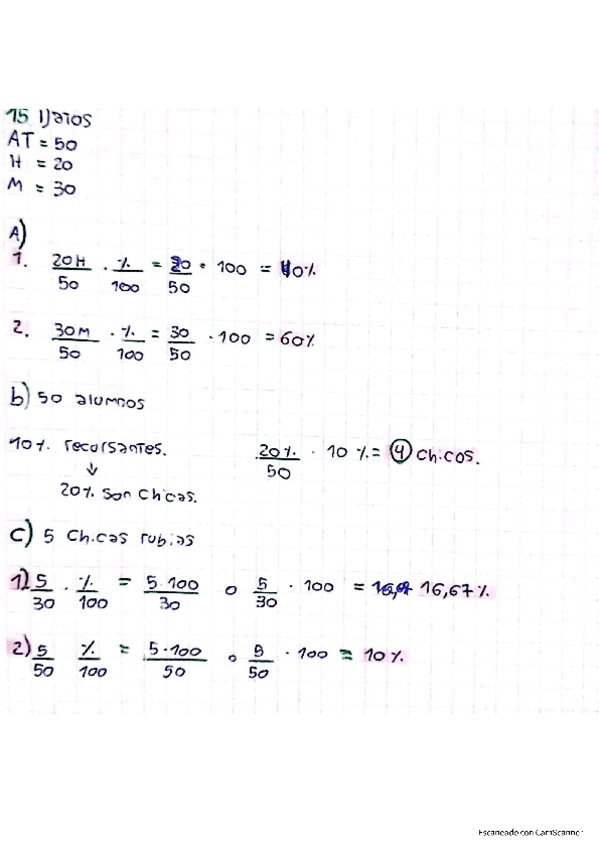 15 Datos
AT = 50
H = 20
M = 30
A)
1. 20H/50 · %/100 = 20/50 · 100 = 40%
2. 30M/50 · %/100 = 30/50 · 100 = 60%
b) 50 alumnos
10% recursantes.
↓
20% son chicas.
20%/50 · 10% = 4 chicos.
C) 5 chicas rubias
1) 5/30 · %/100 = 5·100/30 o 5/30 · 100 = 16,67%
2) 5/50 %/100 = 5·100/50 o 5/50 · 100 = 10%
Escaneado con CamScanner